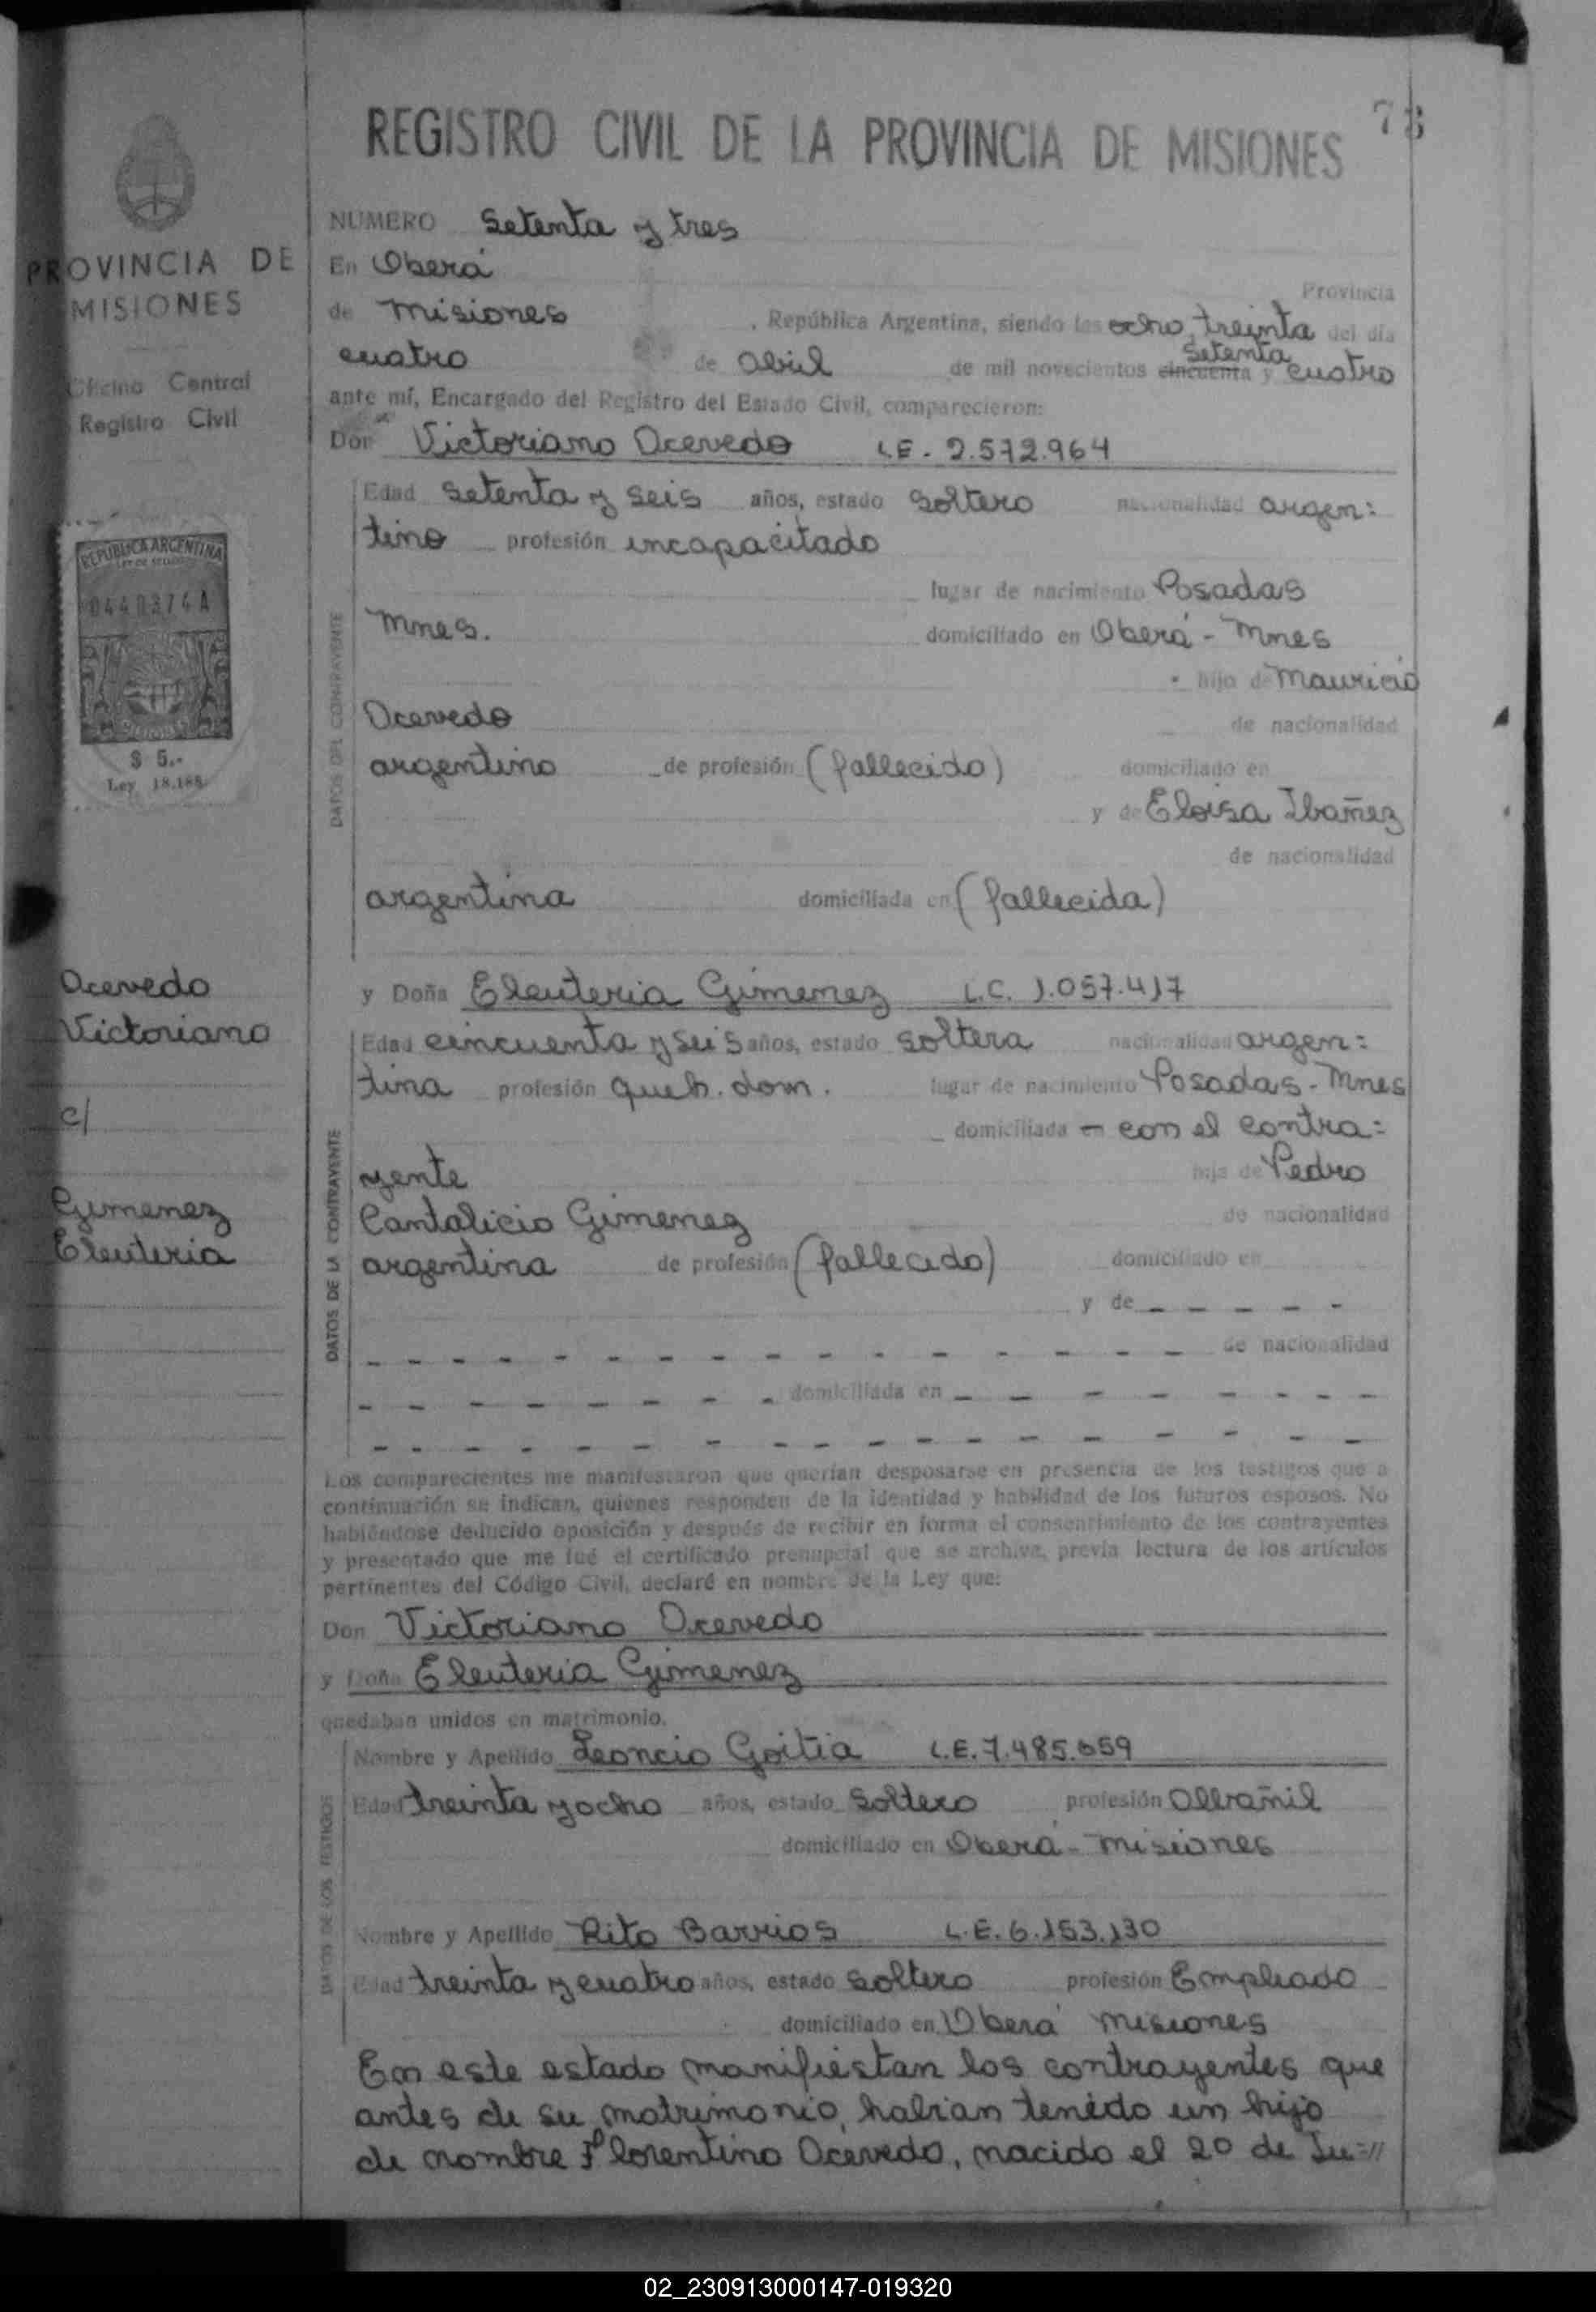 73
REGISTRO CIVIL DE LA PROVINCIA DE MISIONES
PROVINCIA DE
MISIONES
Oficina Central
Registro Civil
REPUBLICA ARGENTINA
0440374 A
$ 5.-
Ley 18.188
Acevedo
Victoriano
c/
Gimenez
Eleuteria
NUMERO Setenta y tres
En Oberá
Provincia
de Misiones , República Argentina, siendo las ocho, treinta del día
cuatro de Abril de mil novecientos cincuenta setenta y cuatro
ante mí, Encargado del Registro del Estado Civil, comparecieron:
Don Victoriano Acevedo L.E. - 2.572.964
DATOS DEL CONTRAYENTE
Edad Setenta y seis años, estado soltero nacionalidad argen:
tino profesión incapacitado
lugar de nacimiento Posadas
Mnes. domiciliado en Oberá - Mnes
hijo de Mauricio
Acevedo de nacionalidad
argentino de profesión (fallecido) domiciliado en
y de Eloisa Ibañez
de nacionalidad
argentina domiciliada en (fallecida)
y Doña Eleuteria Gimenez L.C. 1.057.417
DATOS DE LA CONTRAYENTE
Edad cincuenta y seis años, estado soltera nacionalidad argen:
tina profesión queh. dom. lugar de nacimiento Posadas - Mnes
domiciliada en con el contra:
yente hija de Pedro
Cantalicio Gimenez de nacionalidad
argentina de profesión (fallecido) domiciliado en
y de - - - - -
- - - - - - - - - - - - - - - - de nacionalidad
- - - - - - - - domiciliada en - - - - - - - -
- - - - - - - - - - - - - - - - - -
Los comparecientes me manifestaron que querían desposarse en presencia de los testigos que a
continuación se indican, quienes responden de la identidad y habilidad de los futuros esposos. No
habiéndose deducido oposición y después de recibir en forma el consentimiento de los contrayentes
y presentado que me fué el certificado prenupcial que se archiva, previa lectura de los artículos
pertinentes del Código Civil, declaré en nombre de la Ley que:
Don Victoriano Acevedo
y Doña Eleuteria Gimenez
quedaban unidos en matrimonio.
DATOS DE LOS TESTIGOS
Nombre y Apellido Leoncio Goitia L.E. 7.485.659
Edad treinta y ocho años, estado soltero profesión Albañil
domiciliado en Oberá - Misiones
Nombre y Apellido Rito Barrios L.E. 6.153.130
Edad treinta y cuatro años, estado soltero profesión Empleado
domiciliado en Oberá Misiones
En este estado manifiestan los contrayentes que
antes de su matrimonio, habian tenido un hijo
de nombre Florentino Acevedo, nacido el 20 de Ju=//
02_230913000147-019320